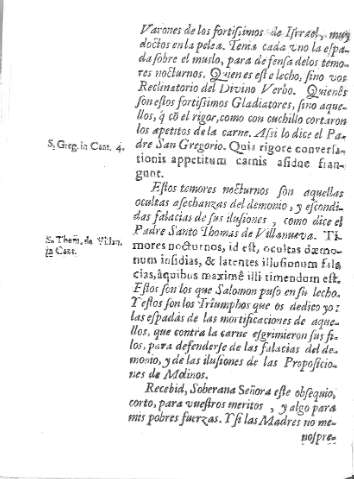 Varones de los fortissimos de Israel, muy
doctos en la pelea. Tenia cada vno la espa-
da sobre el muslo, para defensa de los temo-
res nocturnos. Quien es este lecho, sino vos
Reclinatorio del Divino Verbo. Quienes
son estos fortissimos Gladiatores, sino aque-
llos, q̃ cõ el rigor, como con cuchillo cortaron
los apetitos de la carne. Assi lo dice el Pa-
S. Greg. in Cant. 4.
dre San Gregorio. Quis rigore conversa-
tionis appetitum carnis assidue fran-
gunt.
Estos temores nocturnos son aquellas
ocultas asechanzas del demonio, y escondi-
das falacias de sus ilusiones, como dice el
S. Thom. de Villan.
in Cant.
Padre Santo Thomàs de Villanueva. Ti-
mores nocturnos, id est, ocultas dæmo-
num insidias, & latentes illusionum fala-
cias, àquibus maximè illi timendum est.
Estos son los que Salomon puso en su lecho.
Y estos son los Triumphos que os dedico yo:
las espadas de las mortificaciones de aque-
llos, que contra la carne esgrimieron sus fi-
los, para defenderse de las falacias del de-
monio, y de las ilusiones de las Proposicio-
nes de Molinos.
Recebid, Soberana Señora este obsequio,
corto, para vuestros meritos, y algo para
mis pobres fuerzas. Y si las Madres no me-
nospre-